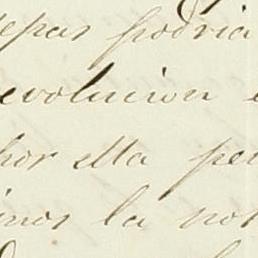 epas podria
evolucion
por ella pe
imos la no